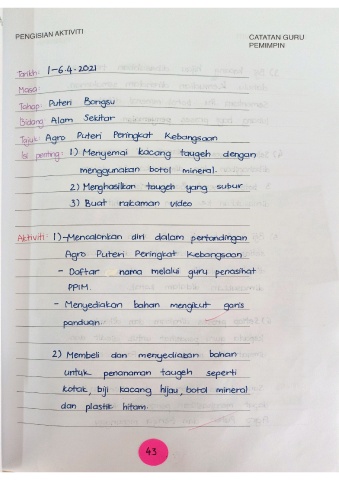 PENGISIAN AKTIVITI
CATATAN GURU
PEMIMPIN
Tarikh: 1-6.4.2021
Masa:
Tahap: Puteri Bongsu
Bidang: Alam Sekitar
Tajuk: Agro Puteri Peringkat Kebangsaan
Isi penting: 1) Menyemai kacang taugeh dengan
menggunakan botol mineral.
2) Menghasilkan taugeh yang subur
3) Buat rakaman video
Aktiviti: 1)-Mencalonkan diri dalam pertandingan
Agro Puteri Peringkat Kebangsaan.
- Daftar nama melalui guru penasihat
PPIM.
- Menyediakan bahan mengikut garis
panduan.
2) Membeli dan menyediakan bahan
untuk penanaman taugeh seperti
kotak, biji kacang hijau, botol mineral
dan plastik hitam.
43